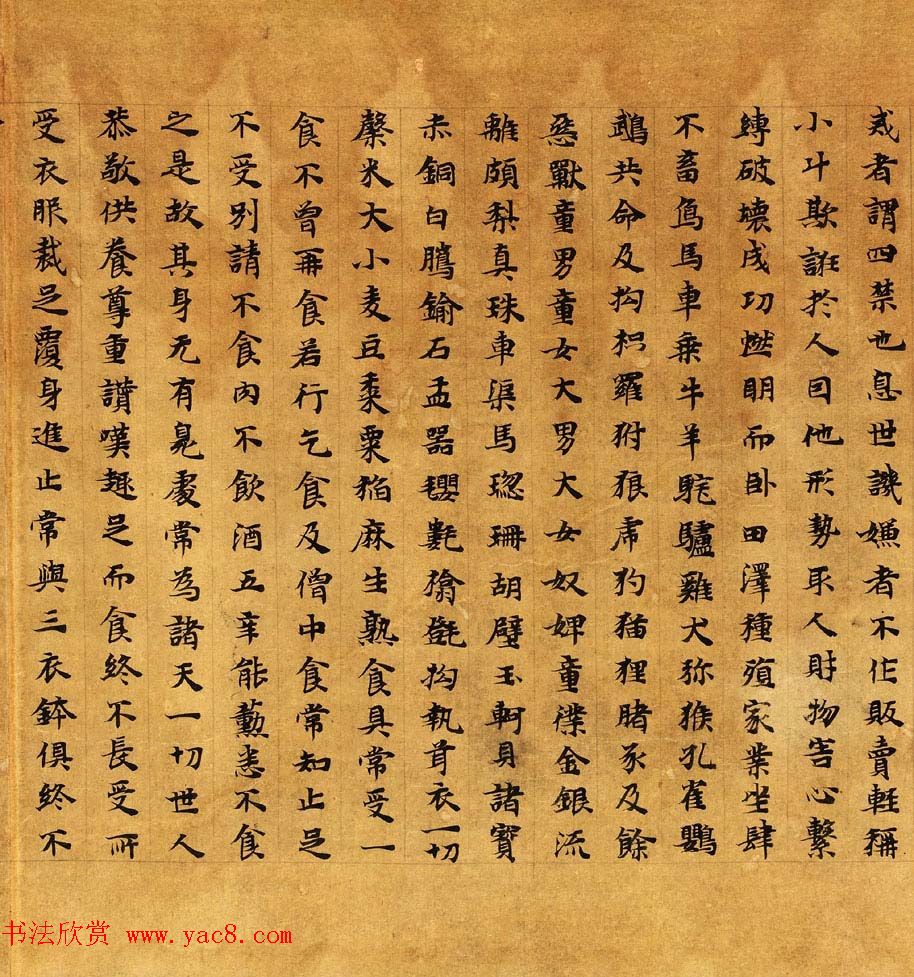 戒者謂四禁也息世譏嫌者不作販賣軽稱
小斗欺誑於人因他形勢取人財物害心繫
縛破壞成功燃明而卧田澤種殖家業坐肆
不畜象馬車乗牛羊駝驢雞犬狝猴孔雀鸚
鵡共命及拘枳羅犲狼虎豹猫狸賭豕及餘
惡獸童男童女大男大女奴婢童僕金銀流
離頗梨真珠車渠馬瑙珊胡璧玉軻貝諸寳
赤銅白鑞鍮石盂器氍毹拘執茸衣一切
槃米大小麦豆黍粟稻麻生熟食具常受一
食不曾再食若行乞食及僧中食常知止足
不受别請不食肉不飲酒五辛能勳悉不食
之是故其身无有臭處常為諸天一切世人
恭敬供養尊重讃嘆趣足而食終不長受所
受衣服裁足覆身進止常與三衣鉢俱終不
书法欣赏 www.yac8.com